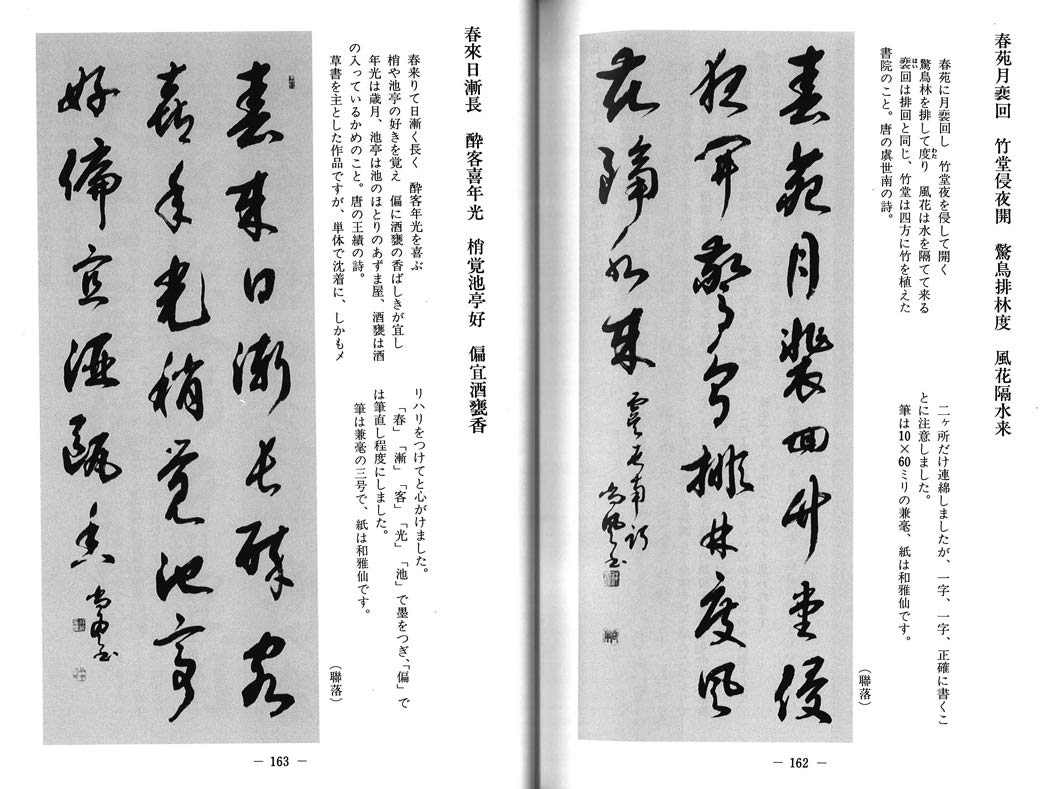 春苑月裴回　竹堂侵夜開　驚鳥排林度　風花隔水来
春苑に月裴回し　竹堂夜を侵して開く
驚鳥林を排して度り　風花は水を隔てて来る
わた
裴回は排回と同じ、竹堂は四方に竹を植えた
はい
書院のこと。唐の虞世南の詩。
二ヶ所だけ連綿しましたが、一字、一字、正確に書くこ
とに注意しました。
筆は10×60ミリの兼毫、紙は和雅仙です。
（聯落）
春苑月裴回竹堂侵
夜開驚鳥排林度風
花隔水来　虞世南詩　尚風書
— 162 —
春來日漸長　酔客喜年光　梢覚池亭好　偏宜酒甕香
春来りて日漸く長く　酔客年光を喜ぶ
梢や池亭の好きを覚え　偏に酒甕の香ばしきが宜し
年光は歳月、池亭は池のほとりのあずま屋、酒甕は酒
の入っているかめのこと。唐の王績の詩。
草書を主とした作品ですが、単体で沈着に、しかもメ
リハリをつけてと心がけました。
「春」「漸」「客」「光」「池」で墨をつぎ、「偏」で
は筆直し程度にしました。
筆は兼毫の三号で、紙は和雅仙です。
（聯落）
春来日漸長酔客
喜年光梢覚池亭
好偏宜酒甕香
— 163 —